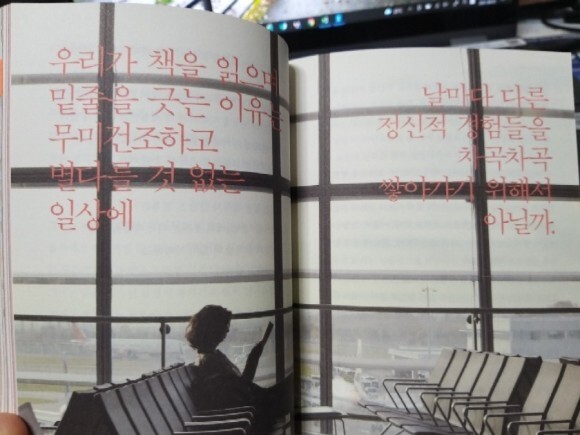 우리가 책을 읽으며
밑줄을 긋는 이유는
무미건조하고
별다를 것 없는
일상에
날마다 다른
정신적 경험들을
차곡차곡
쌓아가기 위해서
아닐까.